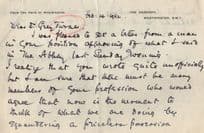 FROM THE DEAN OF WESTMINSTER.
THE DEANERY,
WESTMINSTER, S.W.1.
Dear Dr Grey Turner
I was pleased to get a letter from a man
in your position approving of what I said
in the Abbey last Sunday Evening
I realize that you wrote quite unofficially
but I am sure that there must be many
members of your profession who would
agree that now is the moment to
think of what we are doing by
squandering a priceless possession